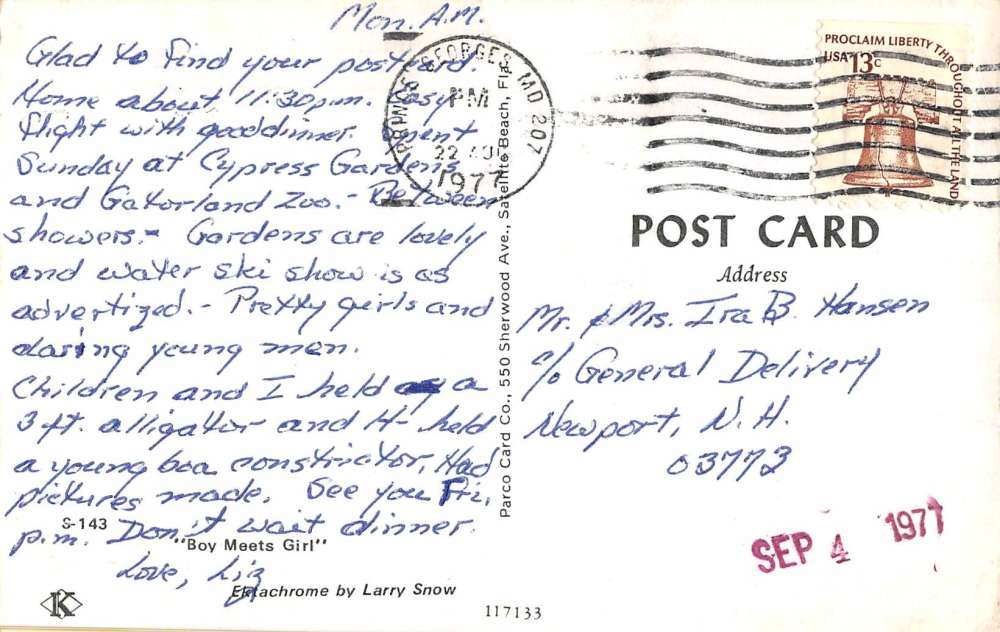 Mon. A.M.
Glad to find your postcard.
Home about 11:30p.m. Easy
flight with good dinner. Spent
Sunday at Cypress Gardens
and Gatorland Zoo. - Between
showers. - Gardens are lovely
and water ski show is as
advertized. - Pretty girls and
daring young men.
Children and I held a
3 ft. alligator and H- held
a young boa constrictor. Had
pictures made. See you Fri.
p.m. Don't wait dinner.
Love, Liz
S-143
"Boy Meets Girl"
Ektachrome by Larry Snow
K
117133
Parco Card Co., 550 Sherwood Ave., Satellite Beach, Fla.
GEORGES, MD 207
PM
22 AUG
1977
PROCLAIM LIBERTY THROUGHOUT ALL THE LAND
USA 13c
POST CARD
Address
Mr. & Mrs. Ira B. Hansen
c/o General Delivery
Newport, N. H.
03773
SEP 4 1977